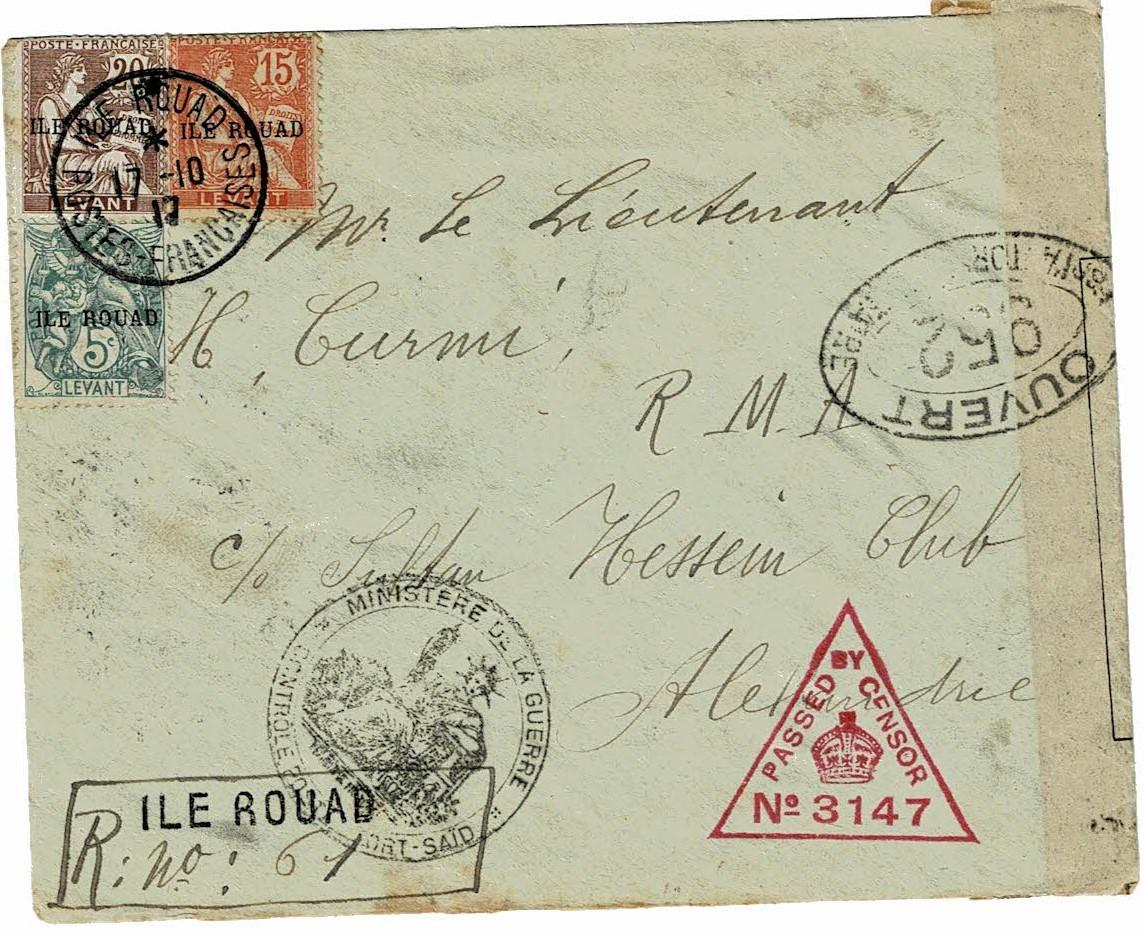 POSTE·FRANÇAISE
20
ILE ROUAD
LEVANT
POSTE·FRANÇAISE
15
DROITS
ILE ROUAD
LEVANT
ILE ROUAD
5c
LEVANT
ILE ROUAD
*
17 -10
17
POSTES-FRANÇAISES
Mr. Le Lieutenant
H. Curmi,
R. M. A
c/o Sultan Hessein Club
Alexandrie
OUVERT
MINISTÈRE DE LA GUERRE
CONTRÔLE
PORT-SAÏD
PASSED BY CENSOR
No 3147
ILE ROUAD
R: no: 61